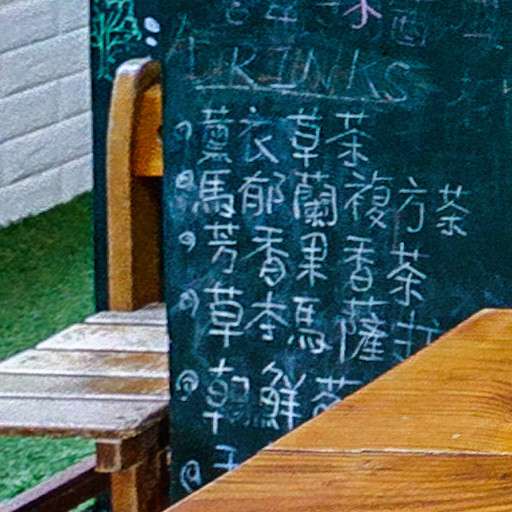 DRINKS
薰衣草茶
馬郁蘭複方茶
芳香果香茶
草本馬薩拉
朝鮮薊